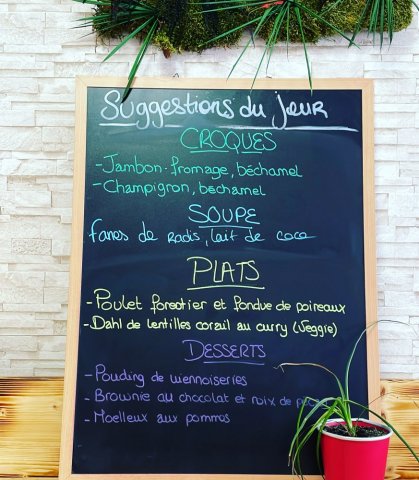 Suggestions du jour
CROQUES
- Jambon-fromage, béchamel
- Champignon, bechamel
SOUPE
fanes de Radis, lait de coco
PLATS
- Poulet forestier et fondue de poireaux
- Dahl de lentilles corail au curry (Veggie)
DESSERTS
- Pouding de viennoiseries
- Brownie au chocolat et noix de
- Moelleux aux pommes